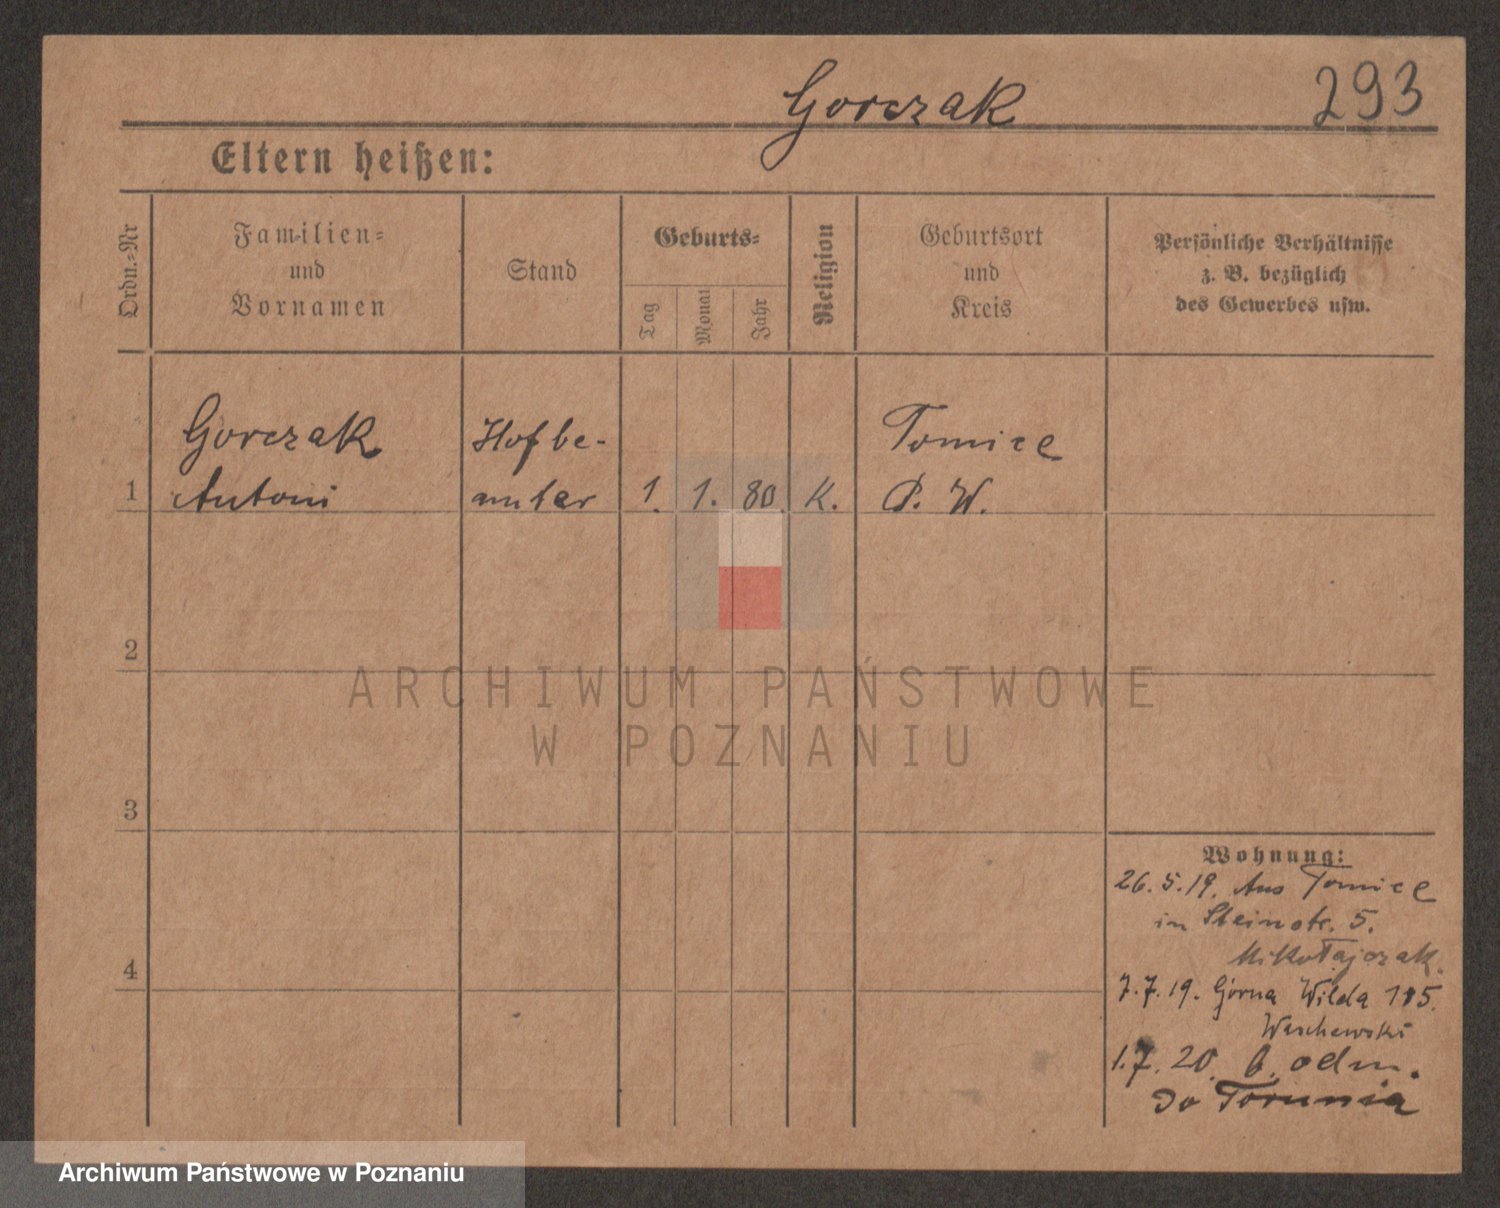 Gorczak 293
Eltern heißen:
Ordn.-Nr
Familien-
und
Vornamen
Stand
Geburts-
Tag
Monat
Jahr
Religion
Geburtsort
und
Kreis
Persönliche Verhältnisse
z. B. bezüglich
des Gewerbes usw.
Gorczak Hofbe- Tomice
1 Antoni amter 1. 1. 80. K. P. W.
2
ARCHIWUM PAŃSTWOWE
W POZNANIU
3
Wohnung:
26.5.19. Aus Tomice
in Steinstr. 5.
Mikołajczak.
4
7.7.19. Górna Wilda 115.
Waschewski
1.7.20. odm.
do Torunia
Archiwum Państwowe w Poznaniu